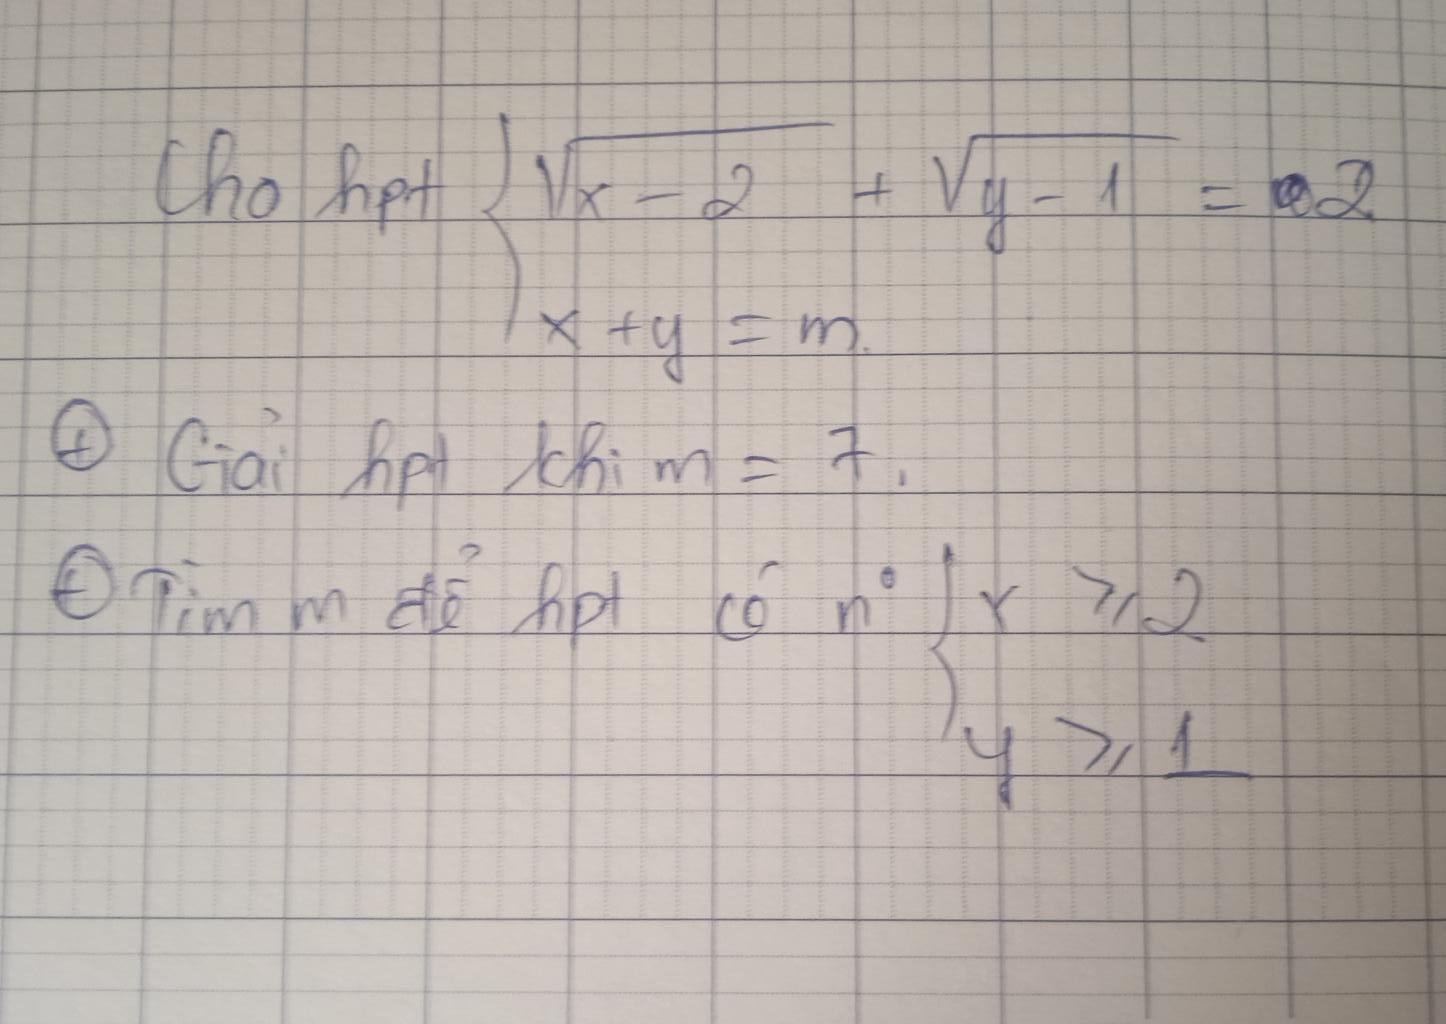 Cho hpt { √x - 2 + √y - 1 = 2
x + y = m.
⊕ Giải hpt khi m = 7.
⊕ Tìm m để hpt có n° { x ⩾ 2
y ⩾ 1